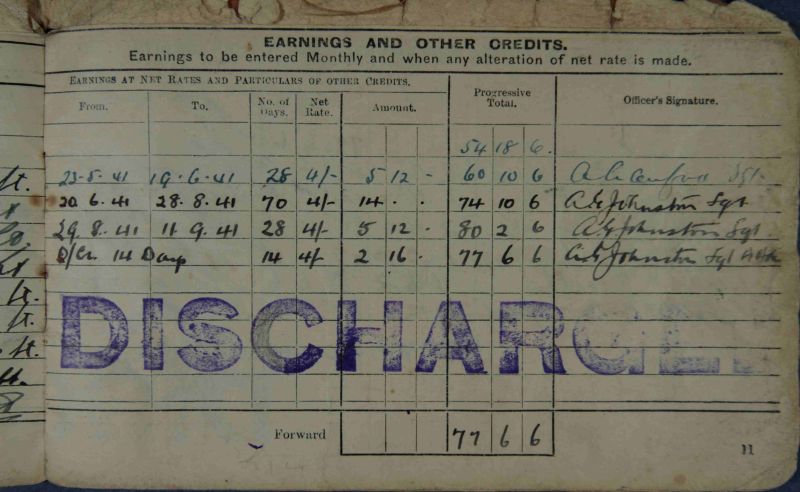 EARNINGS AND OTHER CREDITS.
Earnings to be entered Monthly and when any alteration of net rate is made.
EARNINGS AT NET RATES AND PARTICULARS OF OTHER CREDITS.
From. To. No. of Days. Net Rate. Amount. Progressive Total. Officer's Signature.
54 18 6.
ft. 23.5.41 19.6.41 28 4/- 5 12 - 60 10 6 Sgt.
20 6.41 28.8.41 70 4/- 14 . . 74 10 6 A G Johnston Sgt
29.8.41 11 9.41 28 4/- 5 12 . 80 2 6 A G Johnston Sgt.
D/Cr. 14 Days 14 4/- 2 16 . 77 6 6 A G Johnston Sgt
ft.
DISCHARGE
ft.
ft.
Forward 77 6 6
11